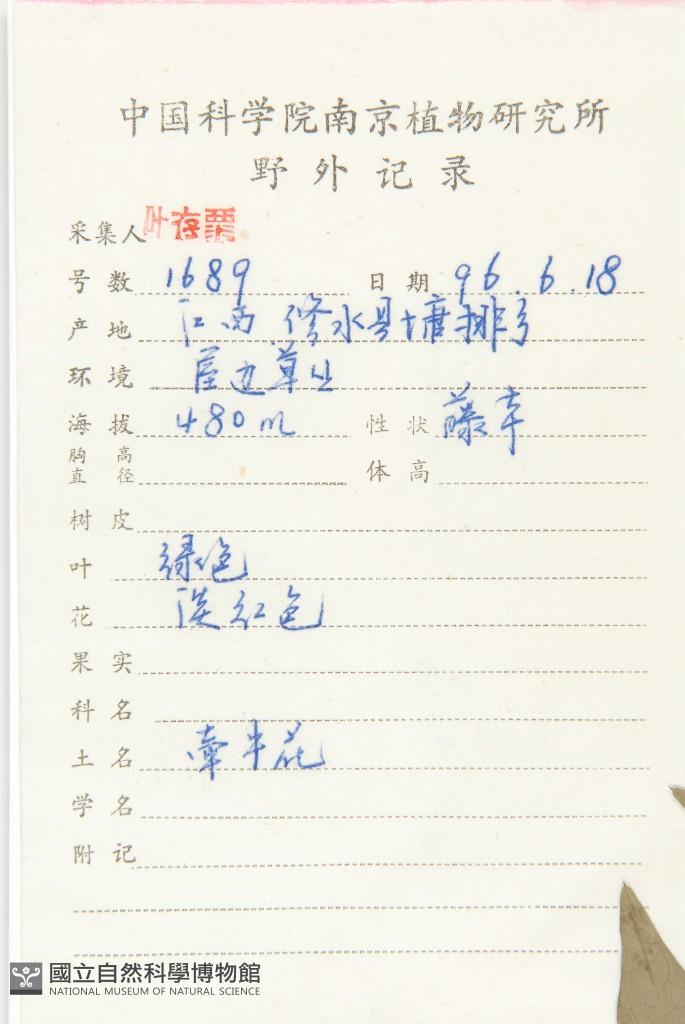 中国科学院南京植物研究所
野外记录
采集人 叶存粟
号数 1689 日期 96.6.18
产地 江西 修水县塘排乡
环境 屋边草丛
海拔 480m 性状 藤本
胸高直径 体高
树皮
叶 绿色
花 淡红色
果实
科名
土名 牵牛花
学名
附记
國立自然科學博物館
NATIONAL MUSEUM OF NATURAL SCIENCE